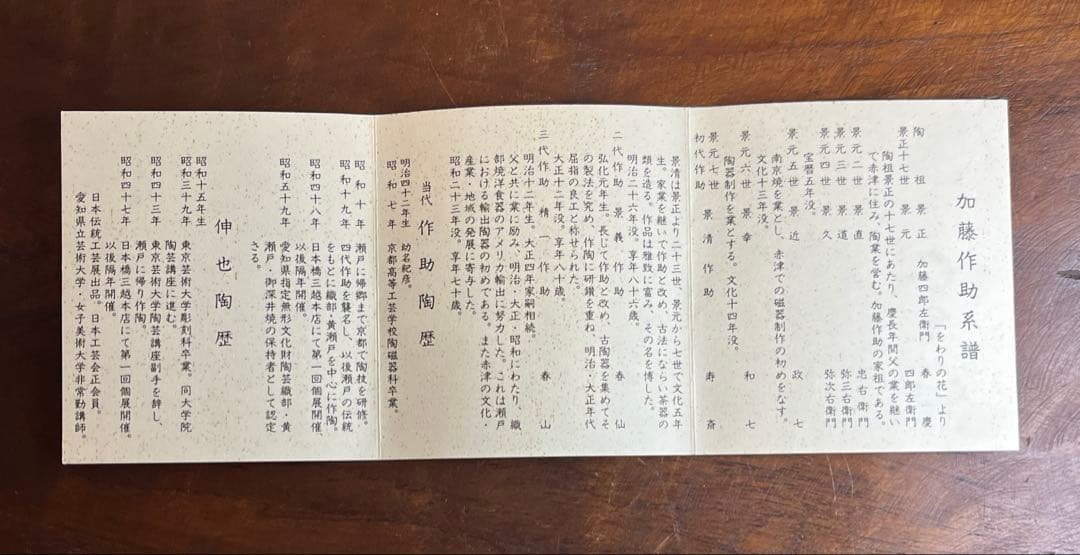 加藤作助系譜
「をわりの花」より
陶祖景正 加藤四郎左衛門 春慶
景正十七世 景元 四郎左衛門
陶祖景正の十七世にあたり、慶長年間父の業を継い
で赤津に住み、陶業を営む。加藤作助の家祖である。
景元二世 景直 忠右衛門
景元三世 景道 弥三右衛門
景元四世 景久 弥次右衛門
宝暦五年没。
景元五世 景近 政七
南京焼を業とし、赤津での磁器制作の初めをなす。
文化十三年没。
景元六世 景幸 和七
陶器制作を業とする。文化十四年没。
景元七世
初代作助 景清作助 寿斎
景清は景正より二十三世、景元から七世で文化五年
生。家業を継いで作助と改め、古法にならい茶器の
類を造る。作品は雅致に富み、その名を博した。
明治二十六年没。享年八十六歳。
二代作助 景義作助 春仙
弘化元年生。長じて作助と改め、古陶器を集めてそ
の製法を究め、作陶に研鑽を重ね、明治・大正年代
屈指の良工と称せられた。
大正十二年没。享年八十歳。
三代作助 精一作助 春山
明治十二年生。大正四年家嗣相続。
父と共に業に励み、明治・大正・昭和にわたり、織
部焼洋食器のアメリカ輸出に努力した。これは瀬戸
における輸出陶器の初めである。また赤津の文化・
産業・地域の発展に寄与した。
昭和二十三年没。享年七十歳。
当代 作助陶歴
明治四十二年生 幼名紀彦。
昭和七年 京都高等工芸学校陶磁器科卒業。
昭和十年 瀬戸に帰郷まで京都で陶技を研修。
昭和十九年 四代作助を襲名し、以後瀬戸の伝統
をもとに織部・黄瀬戸を中心に作陶。
昭和四十八年 日本橋三越本店にて第一回個展開催。
以後隔年開催。
昭和五十九年 愛知県指定無形文化財陶芸織部・黄
瀬戸・御深井焼の保持者として認定
さる。
伸也陶歴
昭和十五年生
昭和三十九年 東京芸術大学彫刻科卒業。同大学院
陶芸講座に進む。
昭和四十三年 東京芸術大学陶芸講座副手を辞し、
瀬戸に帰り作陶。
昭和四十七年 日本橋三越本店にて第一回個展開催。
以後隔年開催。
日本伝統工芸展出品。日本工芸会正会員。
愛知県立芸術大学・女子美術大学非常勤講師。